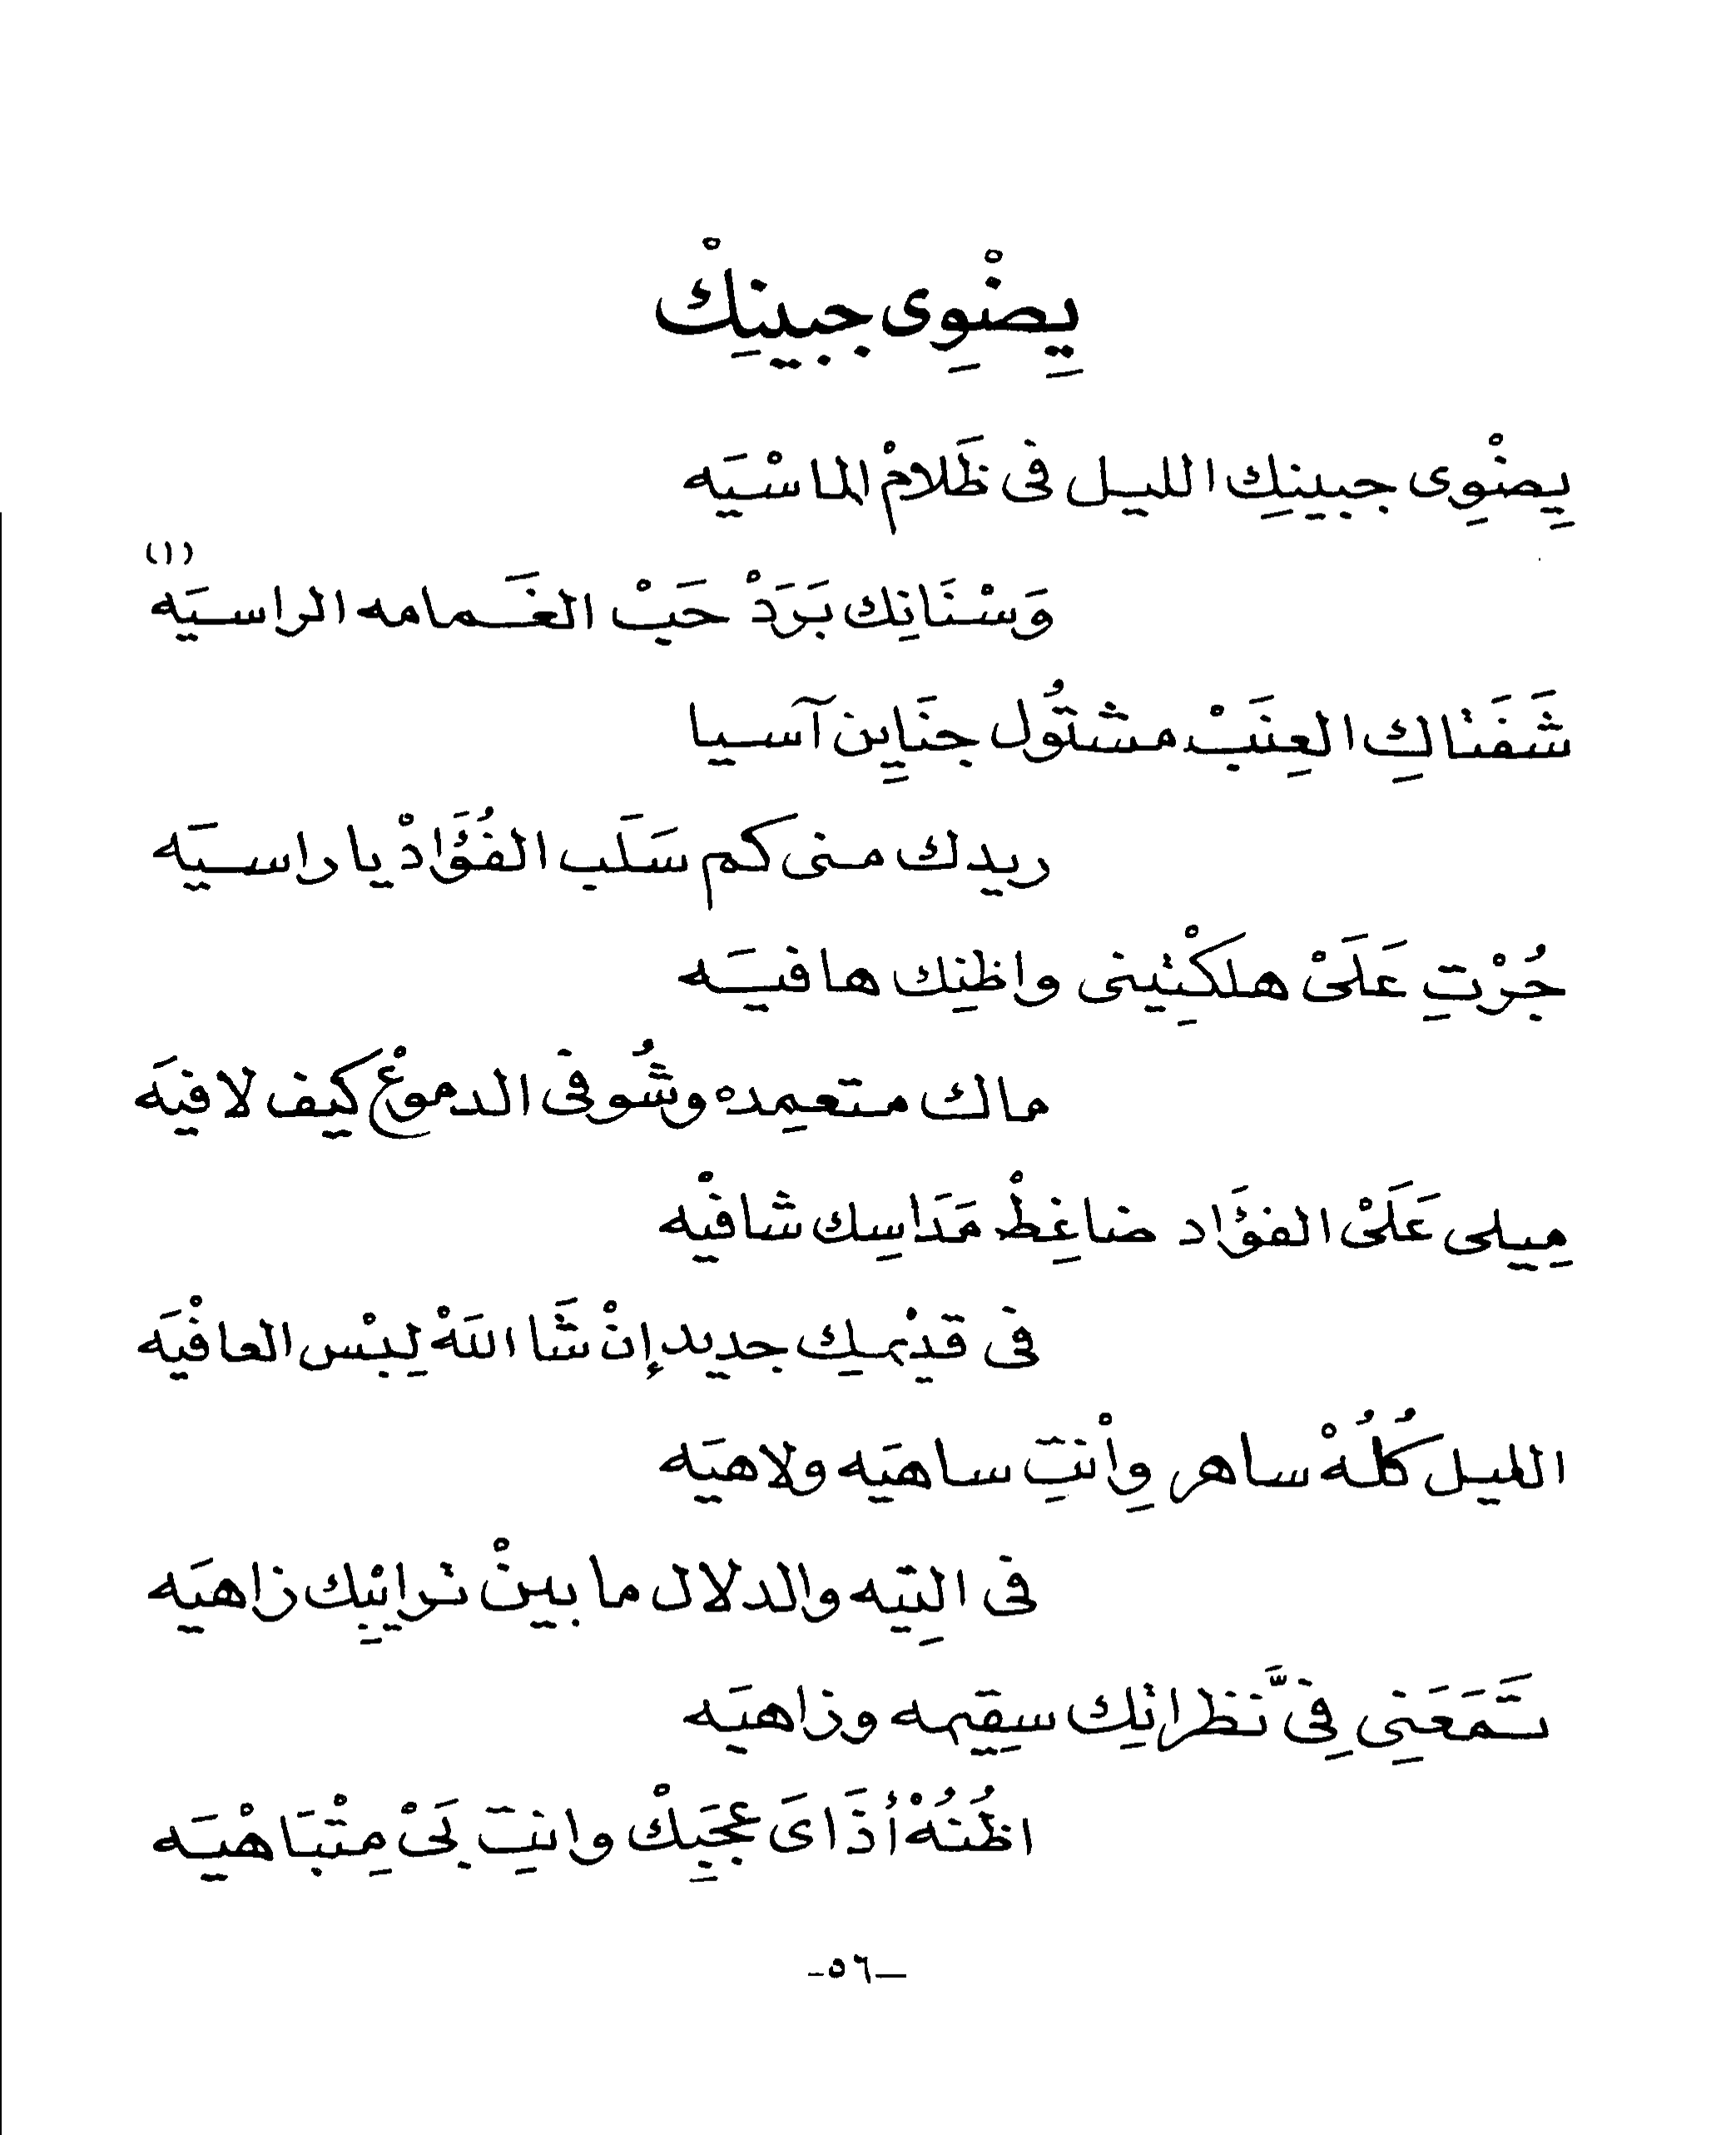 يِضْوِى جبينِكْ
يِضْوِى جبينِك الليل فى ظَلامْ الماسْيَه
وَسْنَانِك بَرَدْ حَبْ الغَمامه الراسيَه (١)
شَفَتاكِ العِنَبْ مشتُول جنَايِن آسيا
ريدك منى كم سَلَب الفُؤَادْ يا راسيَه
جُرْتِ عَلَىْ هلكْتِينى واظنِك هافيَه
مالك متعمِده وشُوفى الدموعْ كيف لافيَه
مِيلى عَلَىْ الفؤَاد ضاغِطْ مَدَاسِك شافيْه
فى قديْمِك جديد إنْ شَا اللهْ لِبْس العافْيَه
الليل كُلُهْ ساهر وِأنتِ ساهيَه ولاهيَه
فى التِيه والدلال ما بينْ ترايبِك زاهيَه
تَمَعَنِى فِىَّ نظراتِك سقِيمه وزاهيَه
اظُنُهْ أذَاىَ عجَبِكْ وانتِ بَىْ مِتْبَاهْيَه
–٥٦–